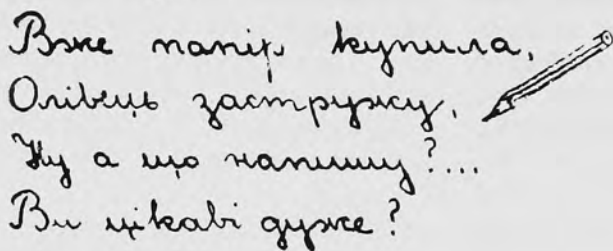 Вже папір купила,
Олівець застружу,
Ну а що напишу?...
Ви цікаві дуже?